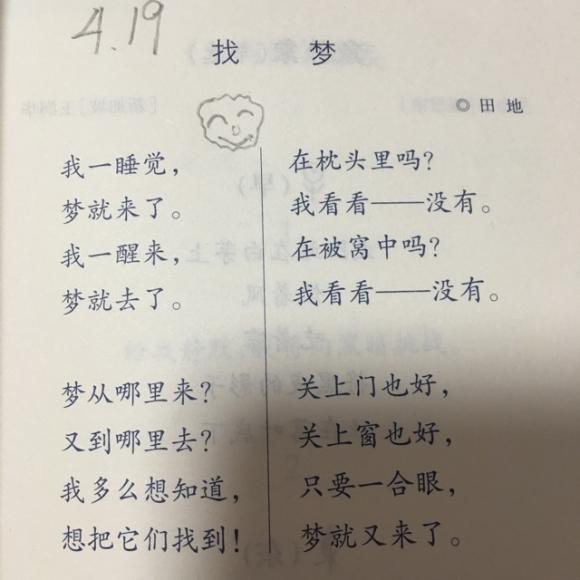 4.19
找梦
◎田地
我一睡觉，
梦就来了。
我一醒来，
梦就去了。
梦从哪里来？
又到哪里去？
我多么想知道，
想把它们找到！
在枕头里吗？
我看看——没有。
在被窝中吗？
我看看——没有。
关上门也好，
关上窗也好，
只要一合眼，
梦就又来了。